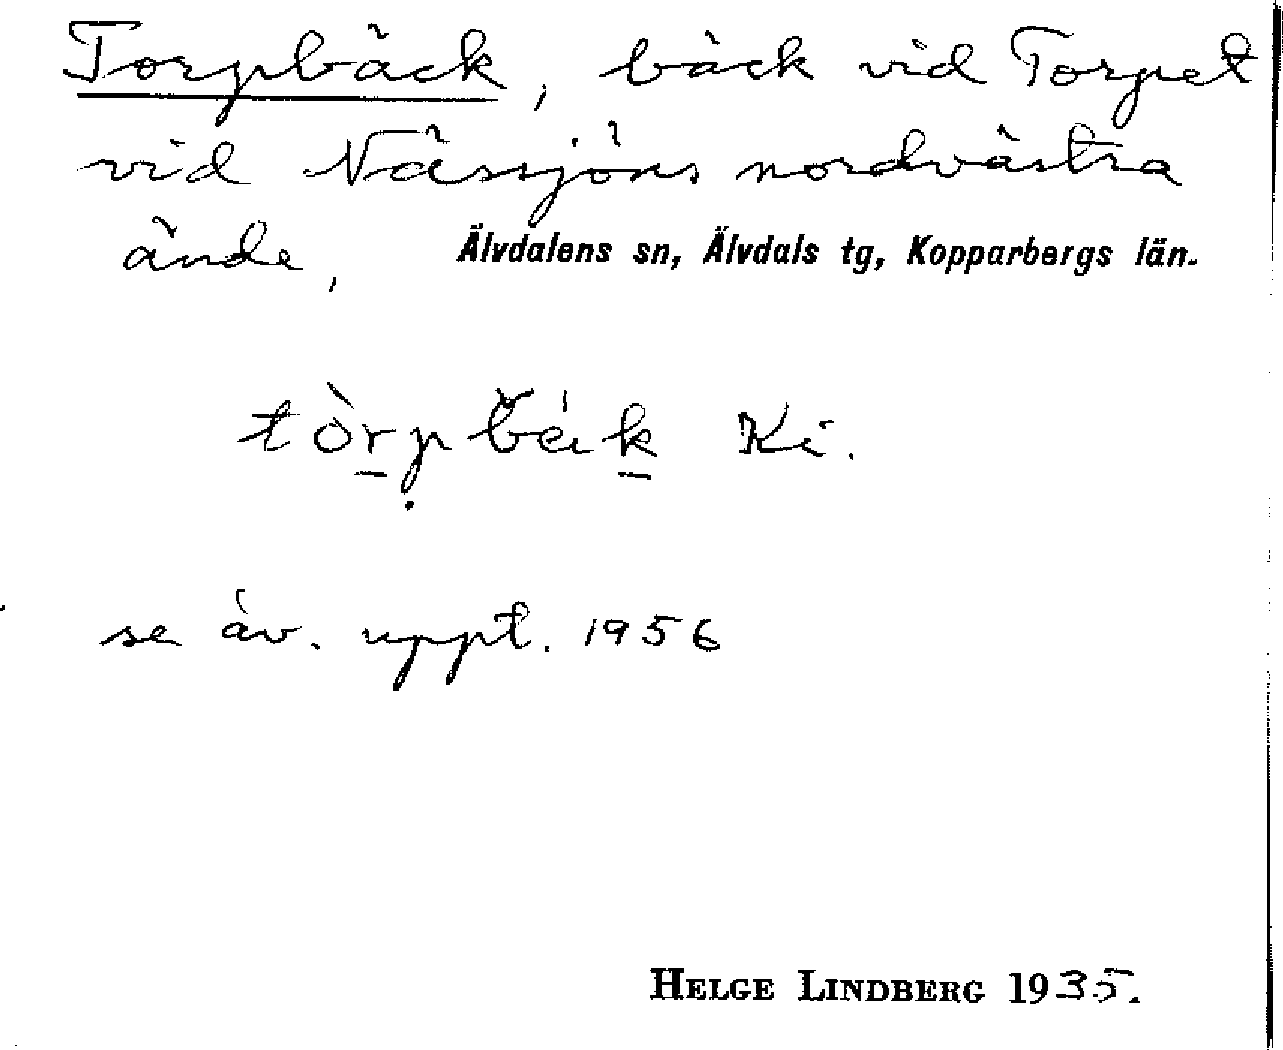 Torpbäck, bäck vid Torpet
vid Nässjöns nordvästra
ände, Älvdalens sn, Älvdals tg, Kopparbergs län.
Ki.
se äv. uppt. 1956
HELGE LINDBERG 1935.